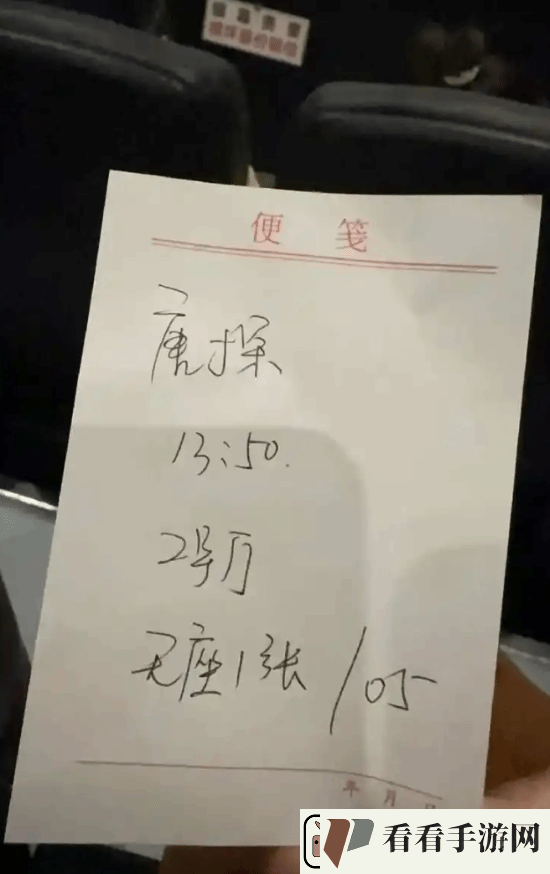 便 笺
唐探
13:50.
2号厅
无座1张/05
年 月 日
看看手游网